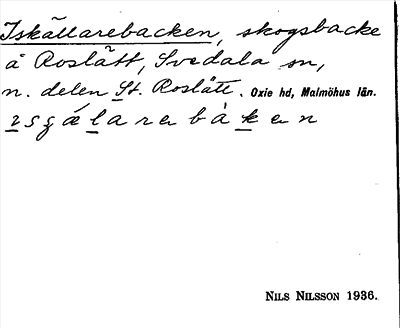 Iskällarebacken, skogsbacke
å Roslätt, Svedala sn,
n. delen St. Roslätt. Oxie hd, Malmöhus län.
NILS NILSSON 1936.